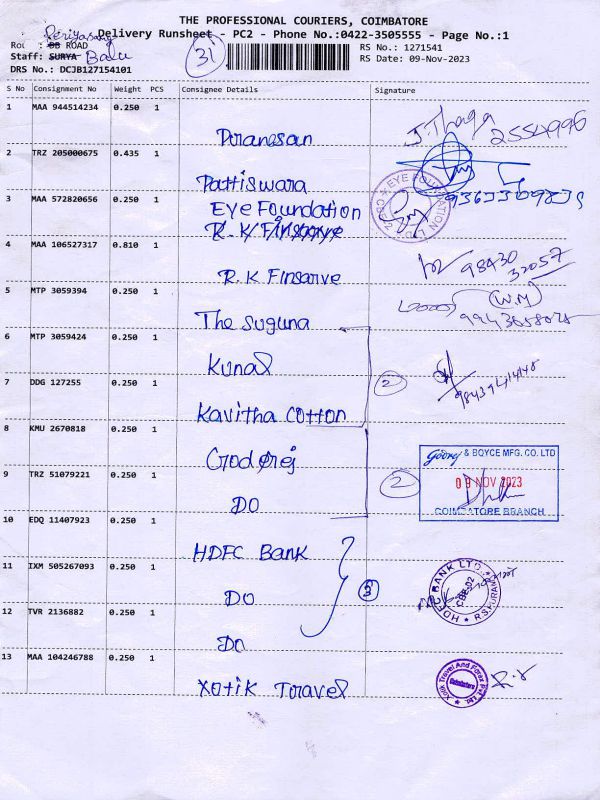 THE PROFESSIONAL COURIERS, COIMBATORE
Delivery Runsheet - PC2 - Phone No.:0422-3505555 - Page No.:1
Periyasamy
: DB ROAD
31
RS No.: 1271541
Staff: SURYA Balu
RS Date: 09-Nov-2023
DRS No.: DCJB127154101
S No Consignment No Weight PCS Consignee Details Signature
1 MAA 944514234 0.250 1
Poranesan
J. Thaga 2554996
2 TRZ 205000675 0.435 1
Pattiswara
3 MAA 572820656 0.250 1
Eye Foundation
R.K Finsarve
EYE FOUNDATION
4 MAA 106527317 0.810 1
R.K Finsarve
98430
32057
5 MTP 3059394 0.250 1
The Suguna
(W.M)
6 MTP 3059424 0.250 1
Kunal
2
7 DDG 127255 0.250 1
Kavitha Cotton
8 KMU 2670818 0.250 1
Godrej
Godrej & BOYCE MFG. CO. LTD
09 NOV 2023
COIMBATORE BRANCH
2
9 TRZ 51079221 0.250 1
DO
10 EDQ 11407923 0.250 1
HDFC Bank
11 IXM 505267093 0.250 1
DO
3
HDFC BANK LTD.
12 TVR 2136882 0.250 1
Do
13 MAA 104246788 0.250 1
Xotik Toravel
Xotik Travel And Forex Pvt Ltd
Coimbatore